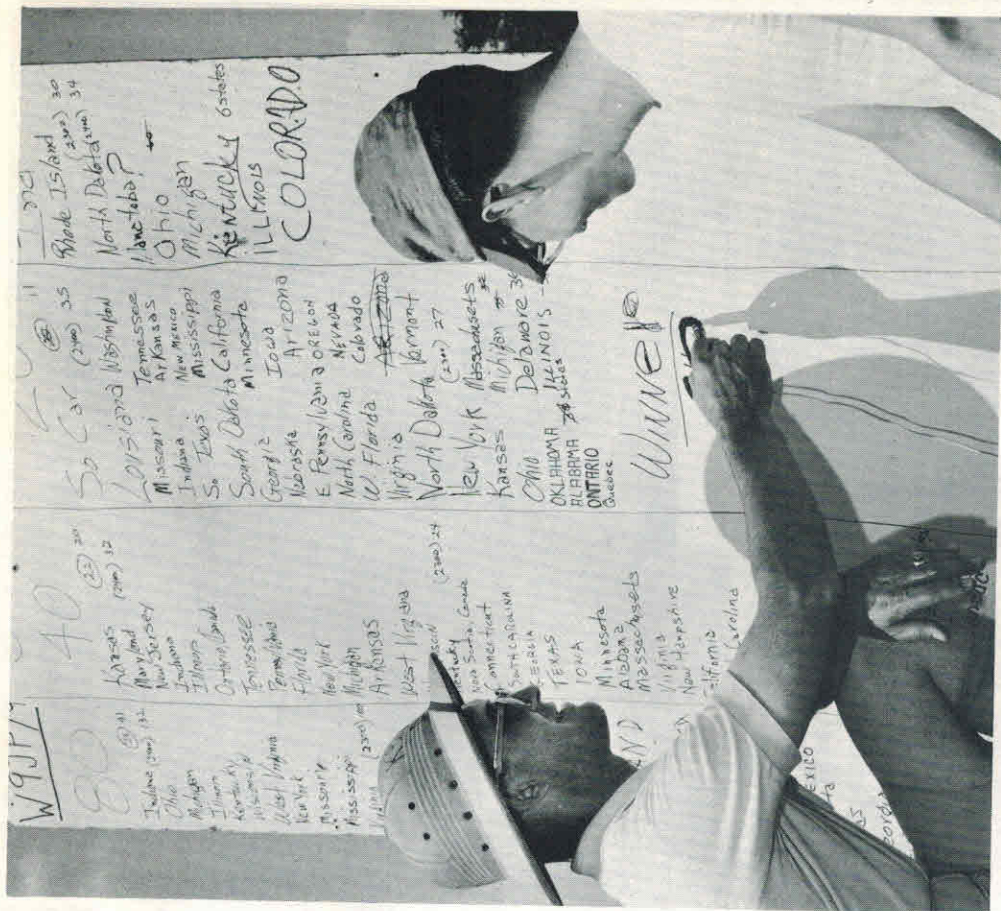 W9JP/9
80
Indiana (2100) 32
Ohio
Michigan
Illinois
Kentucky
Wisconsin
West Virginia
New York
Missouri
Mississippi
(2300)
40
(22) 20
Kansas (2100) 32
Maryland
New Jersey
Indiana
Illinois
Ontario Canada
Tennessee
Pennsylvania
Florida
New York
Michigan
Arkansas
West Virginia
(2300) 24
Nova Scotia Canada
Connecticut
SOUTH CAROLINA
GEORGIA
TEXAS
IOWA
Minnesota
Alabama
Massachusets
Virginia
New Hampshire
California
Carolina
ND
EXICO
20
11
So Car (2100) 35
Loisiana Washington
Missouri Tennessee
Arkansas
Indiana New Mexico
So Texas Mississippi
South Dakota California
Georgia Minnesota
Nebraska Iowa
Arizona
E Pennsylvania OREGON
North Carolina NEVADA
W Florida Colorado
Virginia Arizona
North Dakota Vermont
(2300) 27
New York Massachusets
Kansas Michigan
Ohio Delaware
OKLAHOMA ILLINOIS
ALABAMA states
ONTARIO
Quebec
Winne
Rhode Island
(2300) 30
North Dakota (2400) 34
Manetoba?
Ohio
Michigan
KENTUCKY 6 states
ILLINOIS
COLORADO